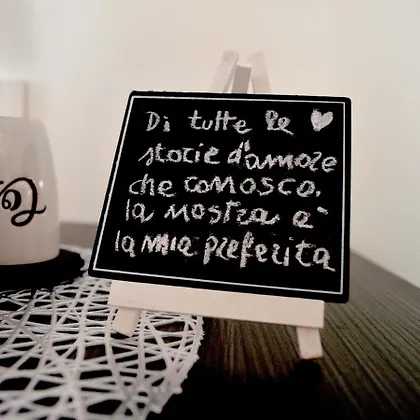 Di tutte le
storie d'amore
che conosco.
la nostra e`
la mia preferita